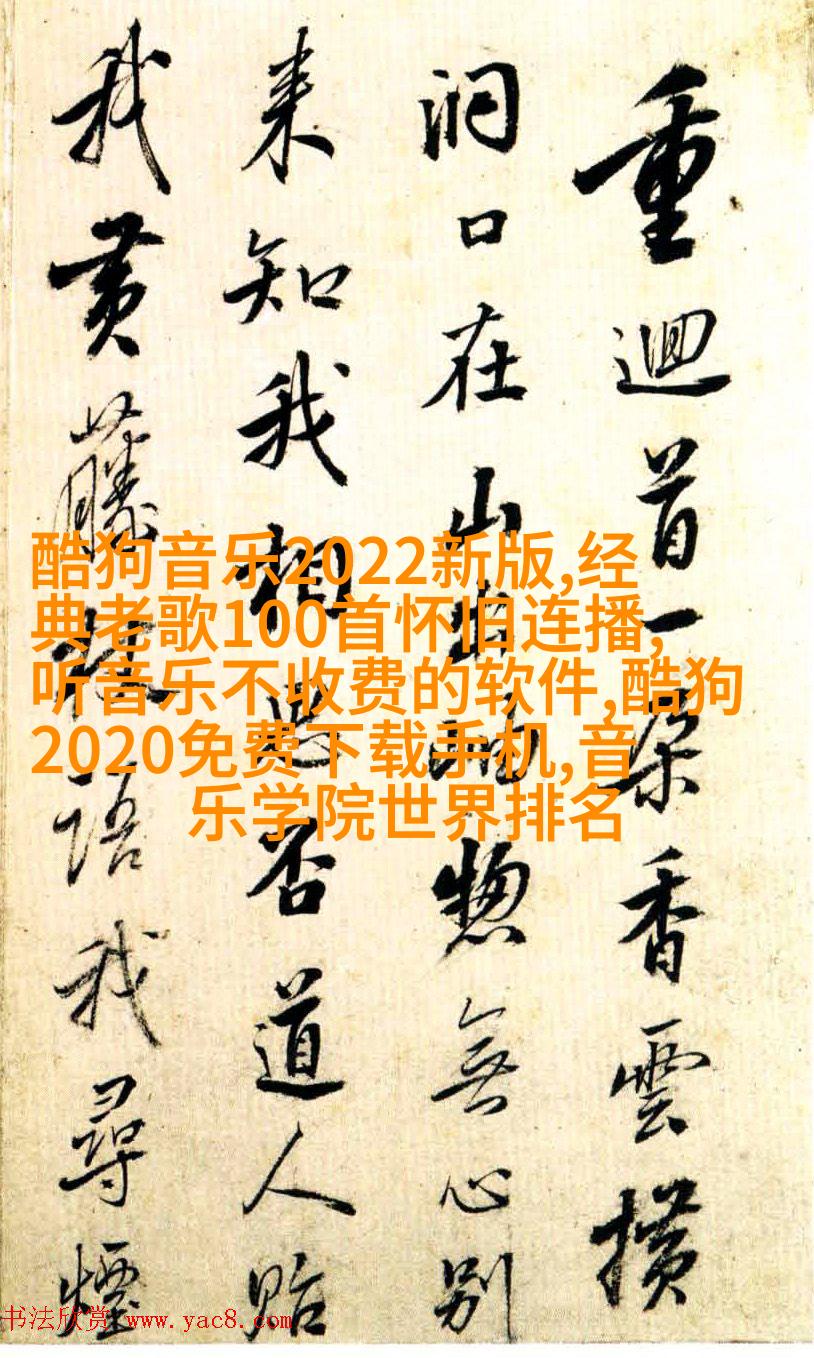 重迴首一朵香雲横
洞口在山出岫惣無心別
来知我相思否道人貽
我黄藤杖語我尋煙
酷狗音乐2022新版,经
典老歌100首怀旧连播,
听音乐不收费的软件,酷狗
2020免费下载手机,音
乐学院世界排名
书法欣赏 www.yac8.com